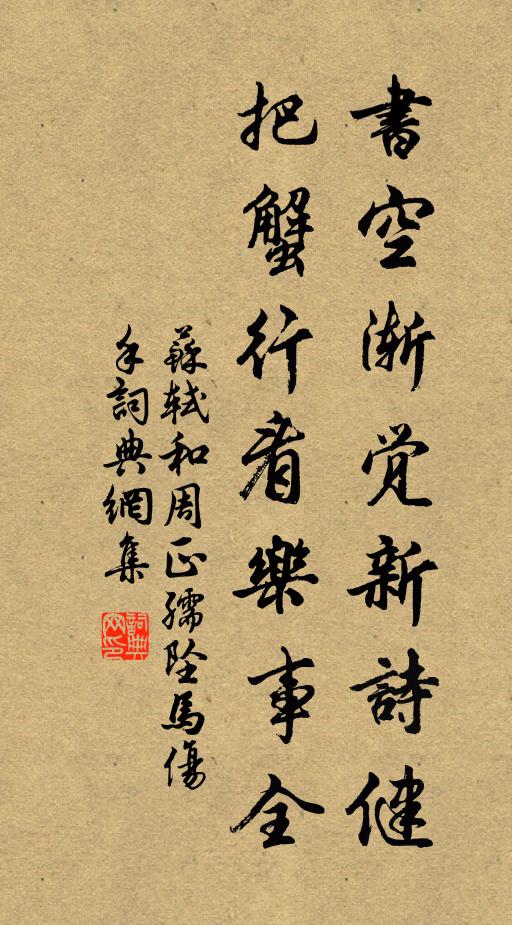 書空渐觉新詩健
把蟹行看樂事全
蘇軾和周正孺墜馬傷
手詞典網集
詞典网印